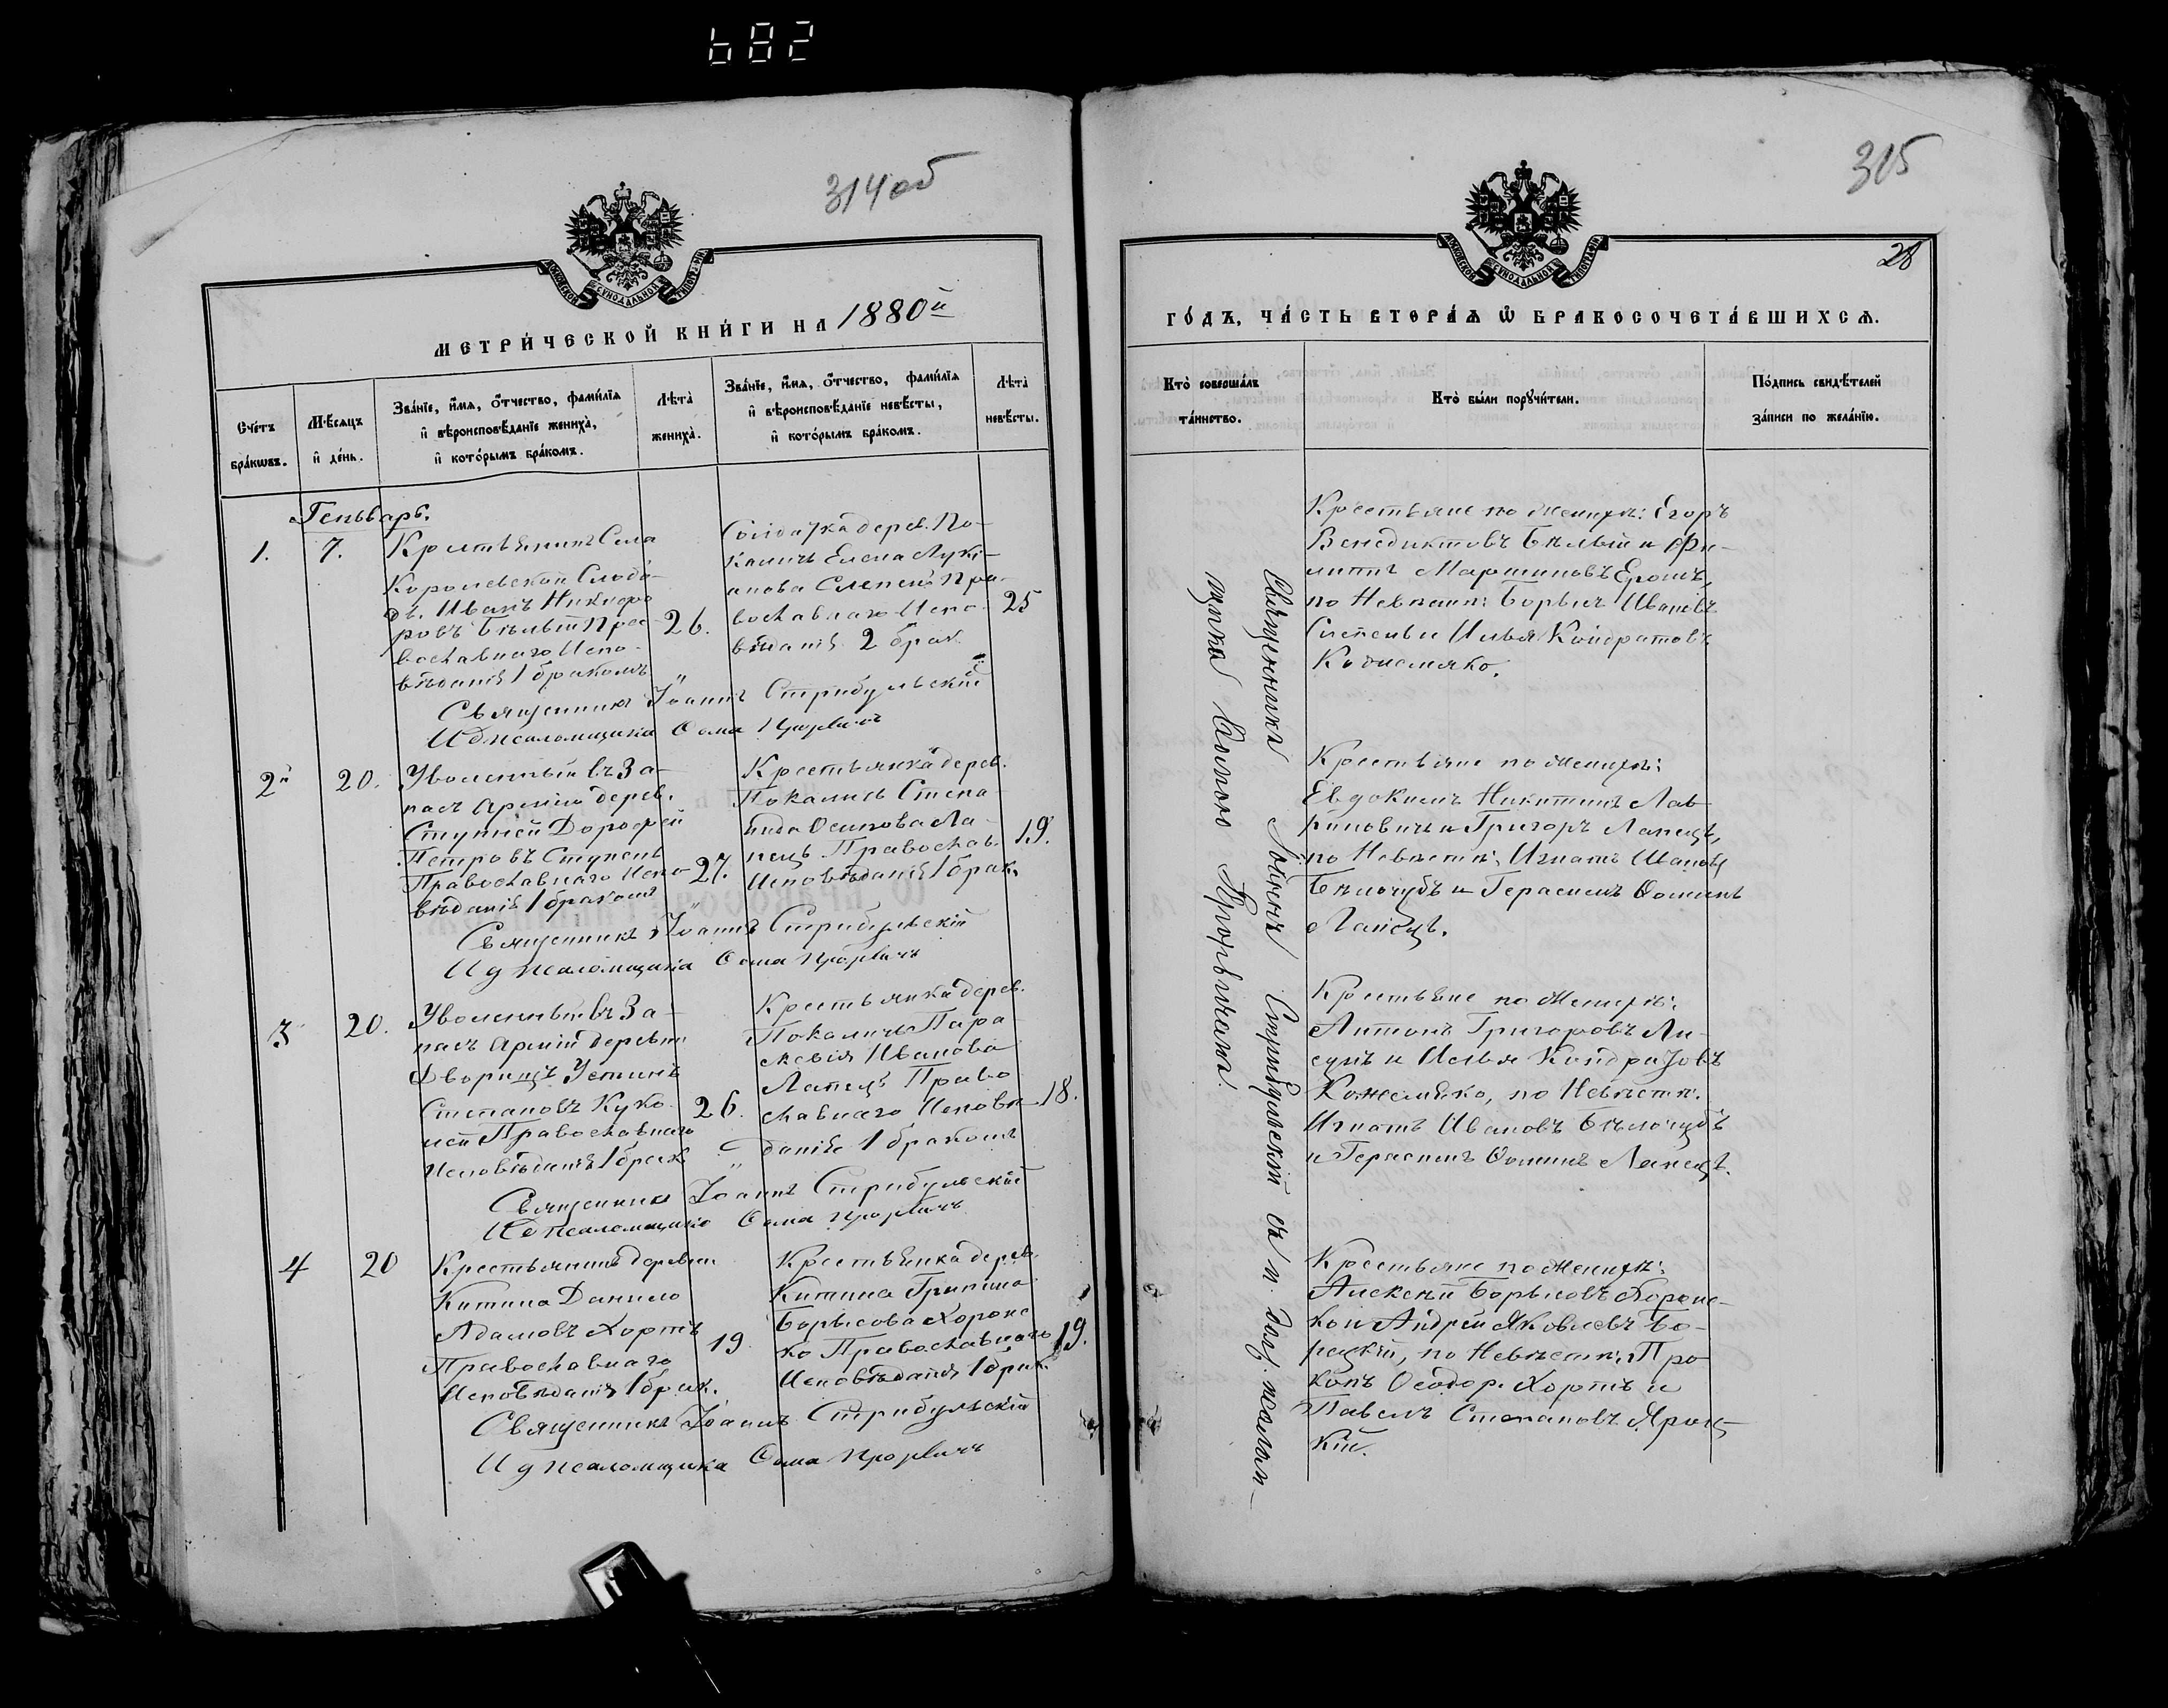 682
314 об
МЕТРИ́ЧЕСКОЙ КНИ́ГИ НА 1880й
Сче́тъ бра́кωвъ.
Мѣ́сяцъ и҆ де́нь.
Зва́нїе, и҆́мѧ, ѻ҆́тчество, фами́лїѧ
и҆ вѣроисповѣ́данїе жениха̀,
и҆ кото́рымъ бра́комъ.
Лѣта̀ жениха̀.
Зва́нїе, и҆́мѧ, ѻ҆́тчество, фами́лїѧ
и҆ вѣроисповѣ́данїе невѣ́сты,
и҆ кото́рымъ бра́комъ.
Лѣта̀ невѣ́сты.
Генварь.
1.
7.
Крестьянинъ Села
Королевской Слобо-
ды Иванъ Никифо
ровъ Бѣлый Пра-
вославнаго Испо-
вѣданія 1 бракомъ
26.
Солдатка дерев. По-
каличъ Елена Луκі-
анова Слепень Пра-
вославнаго Испо-
вѣданія 2 брак.
25
Священникъ Іоаннъ Стрибульскій
И д псаломщика Ѳома
2й
20.
Уволенный въ За-
пасъ Арміи дерев.
Ступней Дорофей
Петровъ Ступень
Православнаго Испо
вѣданія 1 бракомъ
27.
Крестьянка дерев.
Покаличъ Степа-
нида Осипова Ла-
пецъ Православ.
Исповѣданія 1 брак.
19.
Священникъ Іоаннъ Стрибульскій
И д псаломщика Ѳома
3
20.
Уволенный въ За-
пасъ Арміи деревни
Дворищъ Устинъ
Степановъ Куко-
Православнаго
Исповѣданія 1 брак
26.
Крестьянка дерев.
Покаличъ Пара
скевія Иванова
Лапецъ Право
славнаго Исповѣ
даніе 1 бракомъ
18.
Священникъ Іоаннъ Стрибульскій
И д псаломщика Ѳома
4
20
Крестьянинъ деревни
Китина Данило
Адамовъ Хортъ
Православнаго
Исповѣданія 1 брак.
19
Крестьянка дерев.
Китина Грипина
Борысова Хороне
ко Православнаго
Исповѣданія 1 брак.
19.
Священникъ Іоаннъ Стрибульскій
И д псаломщика Ѳома
315
28
ГО́ДЪ, ЧА́СТЬ ВТОРА́Ѧ Ѡ҆ БРАКОСОЧЕТА́ВШИХСѦ.
Кто̀ соверша́лъ та́инство.
Кто̀ бы́ли порꙋчи́тели.
По́дпись свидѣ́телей
за́писи по жела́нїю.
Священникъ Іоаннъ Стрибульскій съ и. долж. псалом-
щика Ѳомою
Крестьяне по Женихѣ: Егоръ
Венедиктовъ Бѣлый и Фи-
липпъ Мартиновъ Ерошъ,
по Невѣстѣ: Борысъ Ивановъ
Слепень и Илья Кондратовъ
Кожемяко.
Крестьяне по Женихѣ:
Евдокимъ Никитинъ Лав
риновичъ и Григоръ Лапецъ,
по Невѣстѣ: Игнатъ Ивановъ
Бѣлочубъ и Герасимъ Ѳоминъ
Лапецъ.
Крестьяне по Женихѣ:
Антонъ Григоровъ Ли-
сунъ и Илья Кондратовъ
Кожемяко, по Невѣстѣ:
Игнатъ Ивановъ Бѣлочубъ
и Герасимъ Ѳоминъ Лапецъ.
Крестьяне по Женихѣ:
Алексѣй Борысовъ Хороне-
ко и Андрей Яковлевъ Бо-
рецкій, по Невѣстѣ: Про
копъ Ѳеодор. Хортъ и
Павелъ Степановъ Яроц-
кій.